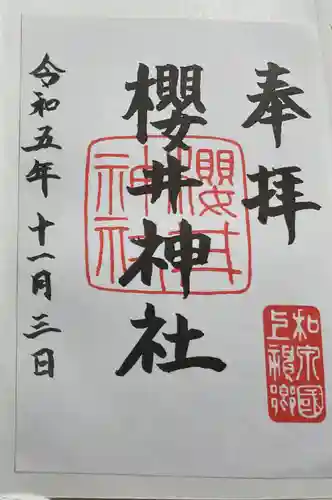 奉拝
和泉國
上神郷
櫻井神社
櫻井
神社
令和五年十一月三日